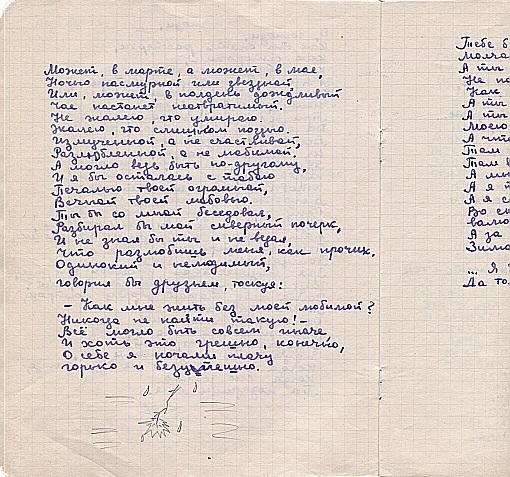 Может, в марте, а может, в мае,
Ночью пасмурной или звездной,
Или, может, в полдень дождливый
Час настанет неотвратимый.
Не жалею, что умираю.
Жалею, что слишком поздно.
Измученной, а не счастливой,
Разлюбленной, а не любимой.
А могло ведь быть по-другому,
И я бы осталась с тобою
Печалью твоей огромной,
Вечной твоей любовью.
Ты бы со мной беседовал,
Разбирал бы мой скверный почерк,
И не знал бы ты и не ведал,
Что разлюбишь меня, как прочих.
Одинокий и нелюдимый,
говорил бы друзьям, тоскуя:
- Как мне жить без моей любимой?
Никогда не найти такую! -
Всё могло быть совсем иначе
И хоть это грешно, конечно,
О себе я ночами плачу
горько и безутешно.
Тебе б
Молча
А ты
Не по
Как
А ты
А ты
Моею
А что
Там
Там в
А мн
А я т
А я с
Во сн
валю
А за
Зима
... Я
Да то